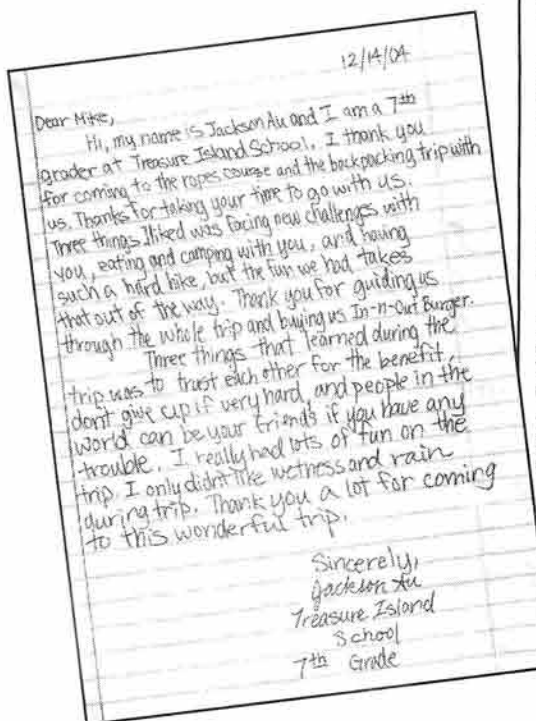 12/14/04
Dear Mike,
Hi, my name is Jackson Au and I am a 7th
grader at Treasure Island School. I thank you
for coming to the ropes course and the backpacking trip with
us. Thanks for taking your time to go with us.
Three things I liked was facing new challenges with
you, eating and camping with you, and having
such a hard hike, but the fun we had takes
that out of the way. Thank you for guiding us
through the whole trip and buying us In-n-Out Burger.
Three things that learned during the
trip was to trust each other for the benefit,
dont give up if very hard, and people in the
world can be your friends if you have any
trouble. I really had lots of fun on the
trip. I only didnt like wetness and rain
during trip. Thank you a lot for coming
to this wonderful trip.
Sincerely,
Jackson Au
Treasure Island
School
7th Grade